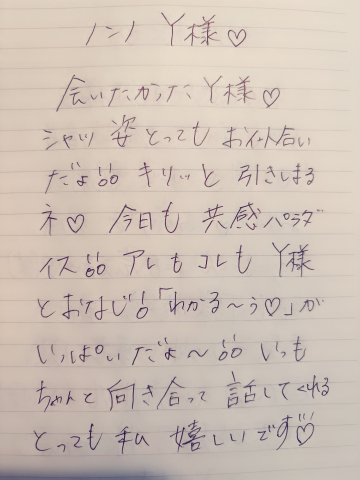 ノンノ Y様♡
会いたかった Y様♡
シャツ 姿 とっても お似合い
だよ キリッと 引きしまる
ネ♡ 今日も 共感パラダ
イス アレも コレも Y様
とおなじ 「わかる〜う♡」が
いっぱい だよ〜 いつも
ちゃんと 向き合って 話してくれる
とっても 私 嬉しいです♡